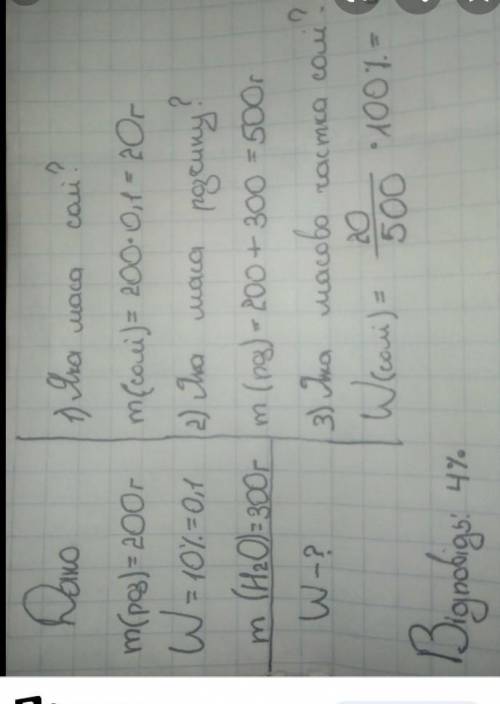 Дано
m(роз)=200г
W=10%=0,1
m (H2O)=300г
W-?
1) Яка маса солі?
m(солі)=200·0,1=20г
2) Яка маса розчину?
m(роз)=200+300=500г
3) Яка масова частка солі?
W(солі)= 20/500 · 100% =
Відповідь: 4%